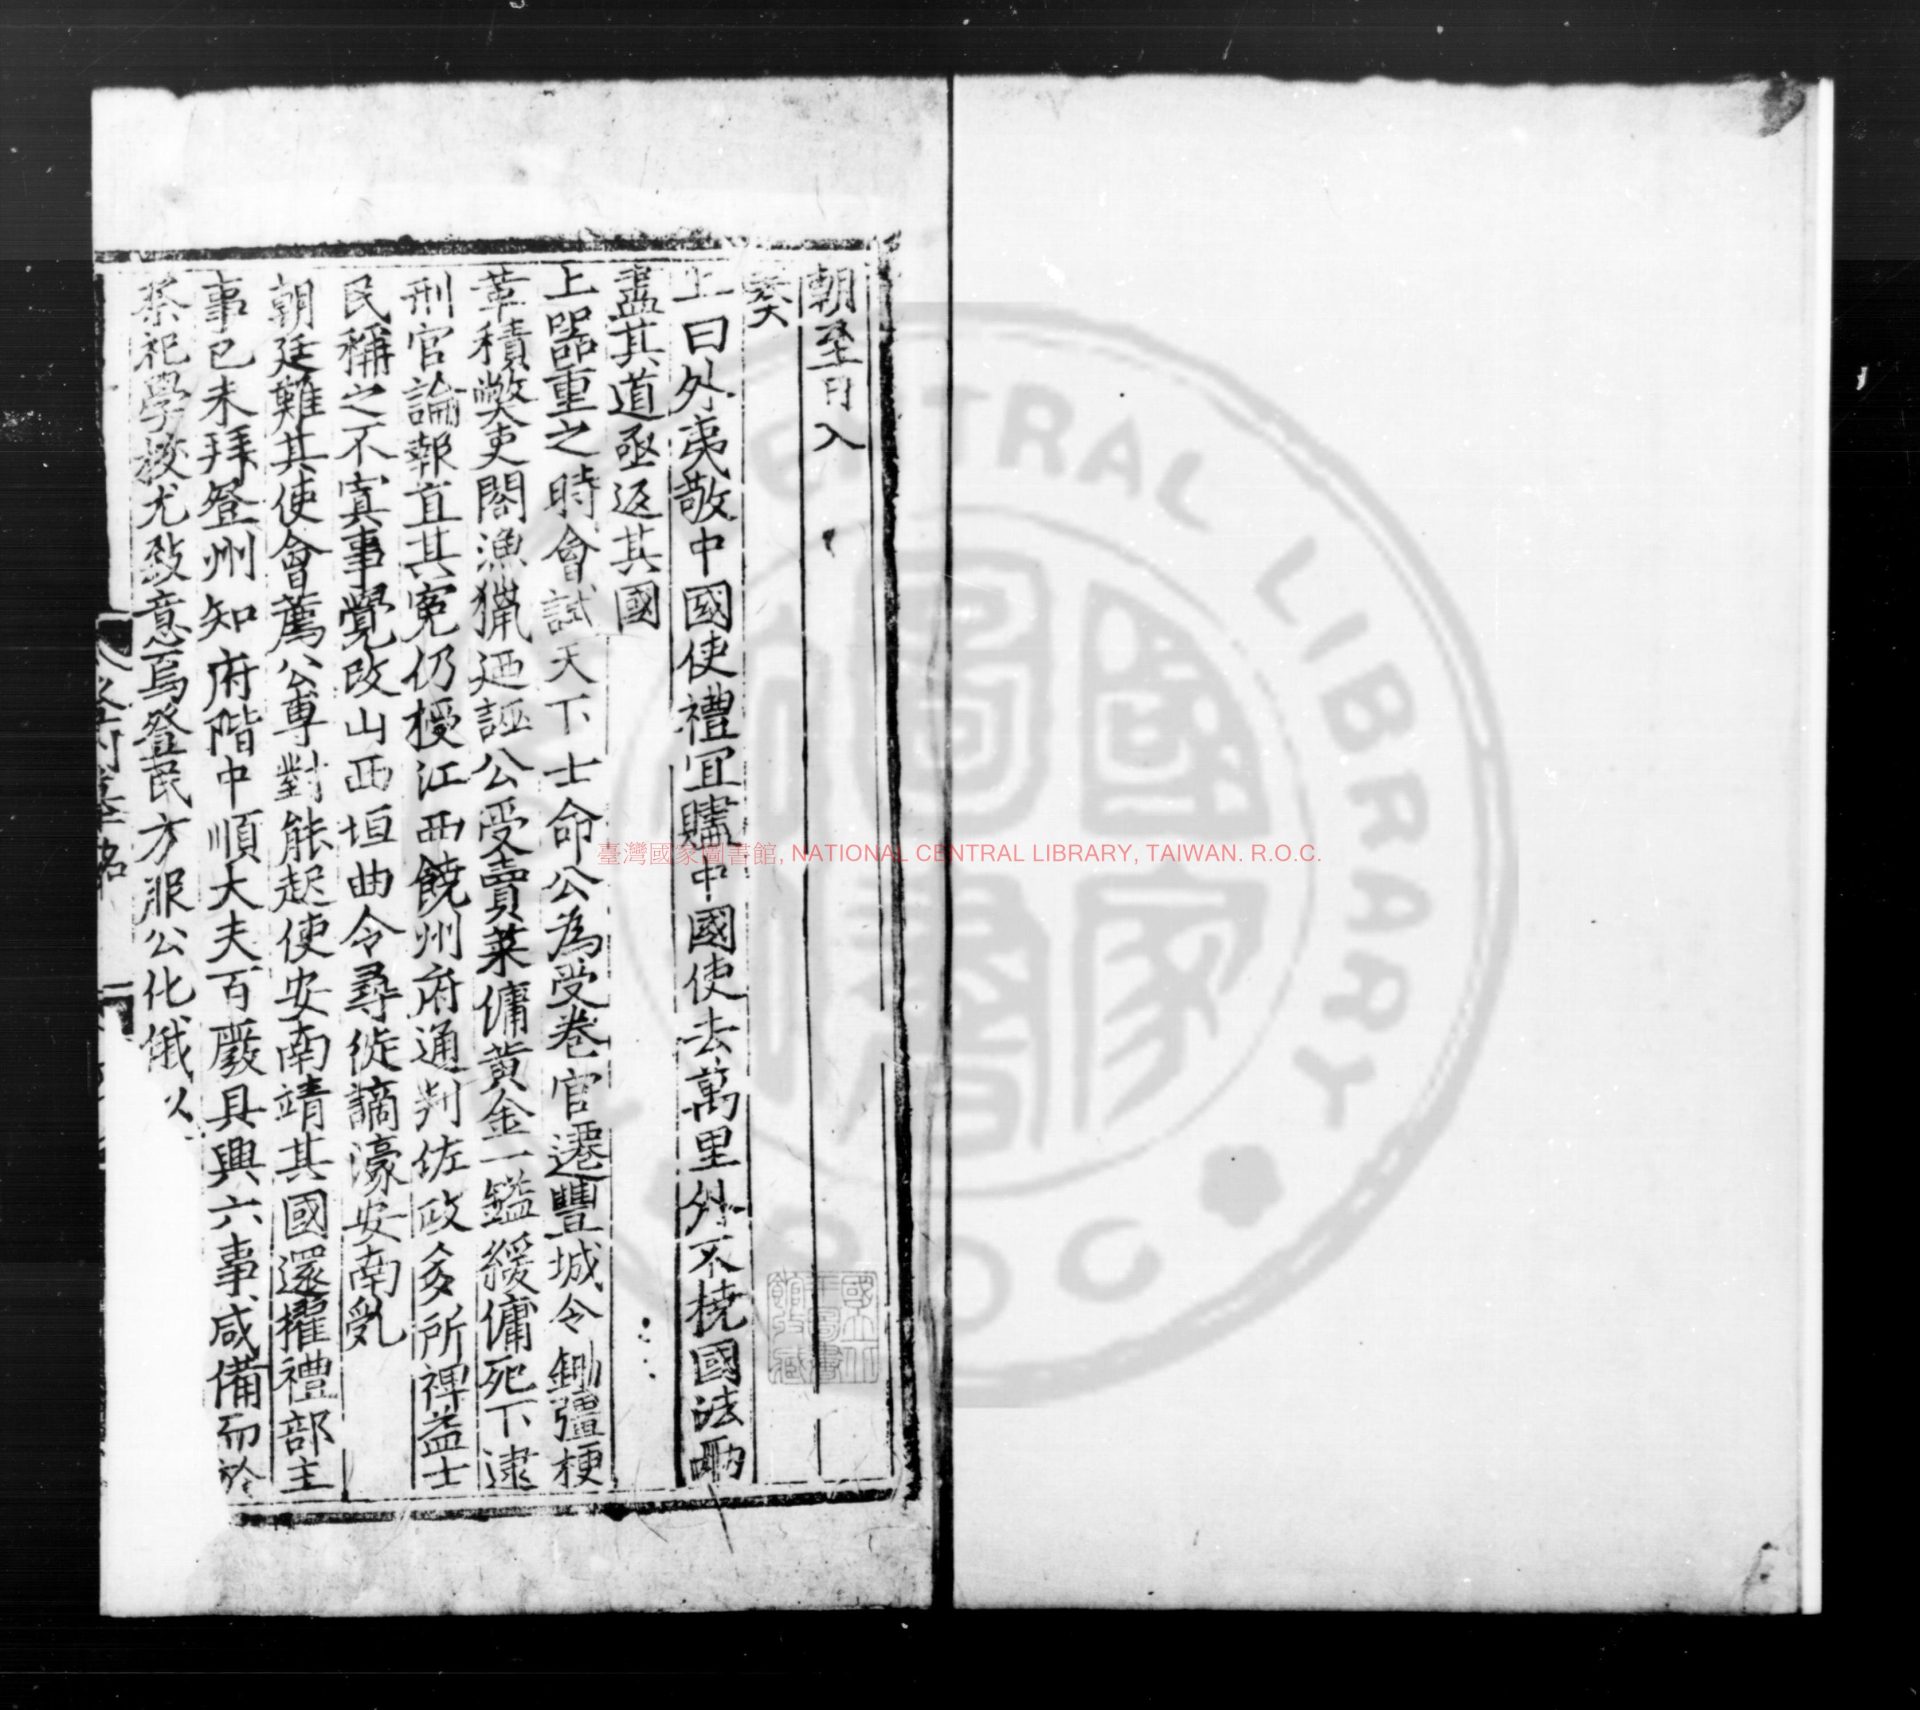 朝至日入
奏
上曰外夷敬中國使禮宜贐中國使去萬里外不撓國法兩
盡其道亟返其國
上器重之時會試天下士命公為受卷官遷豐城令鋤彊梗
革積弊吏閤漁獵廼誣公受賣菜傭黃金一鎰緩傭死下逮
刑官論報直其冤仍授江西饒州府通判佐政多所裨益士
民稱之不寘事覺改山西垣曲令尋徙謫濠安南乱
朝廷難其使會薦公專對能起使安南靖其國還擢禮部主
事已未拜登州知府階中順大夫百廢具興六事咸備而於
祭祀學校尤致意焉登民方服公化俄以
臺灣國家圖書館, NATIONAL CENTRAL LIBRARY, TAIWAN. R.O.C.
CENTRAL LIBRARY
R.O.C.
國家圖書